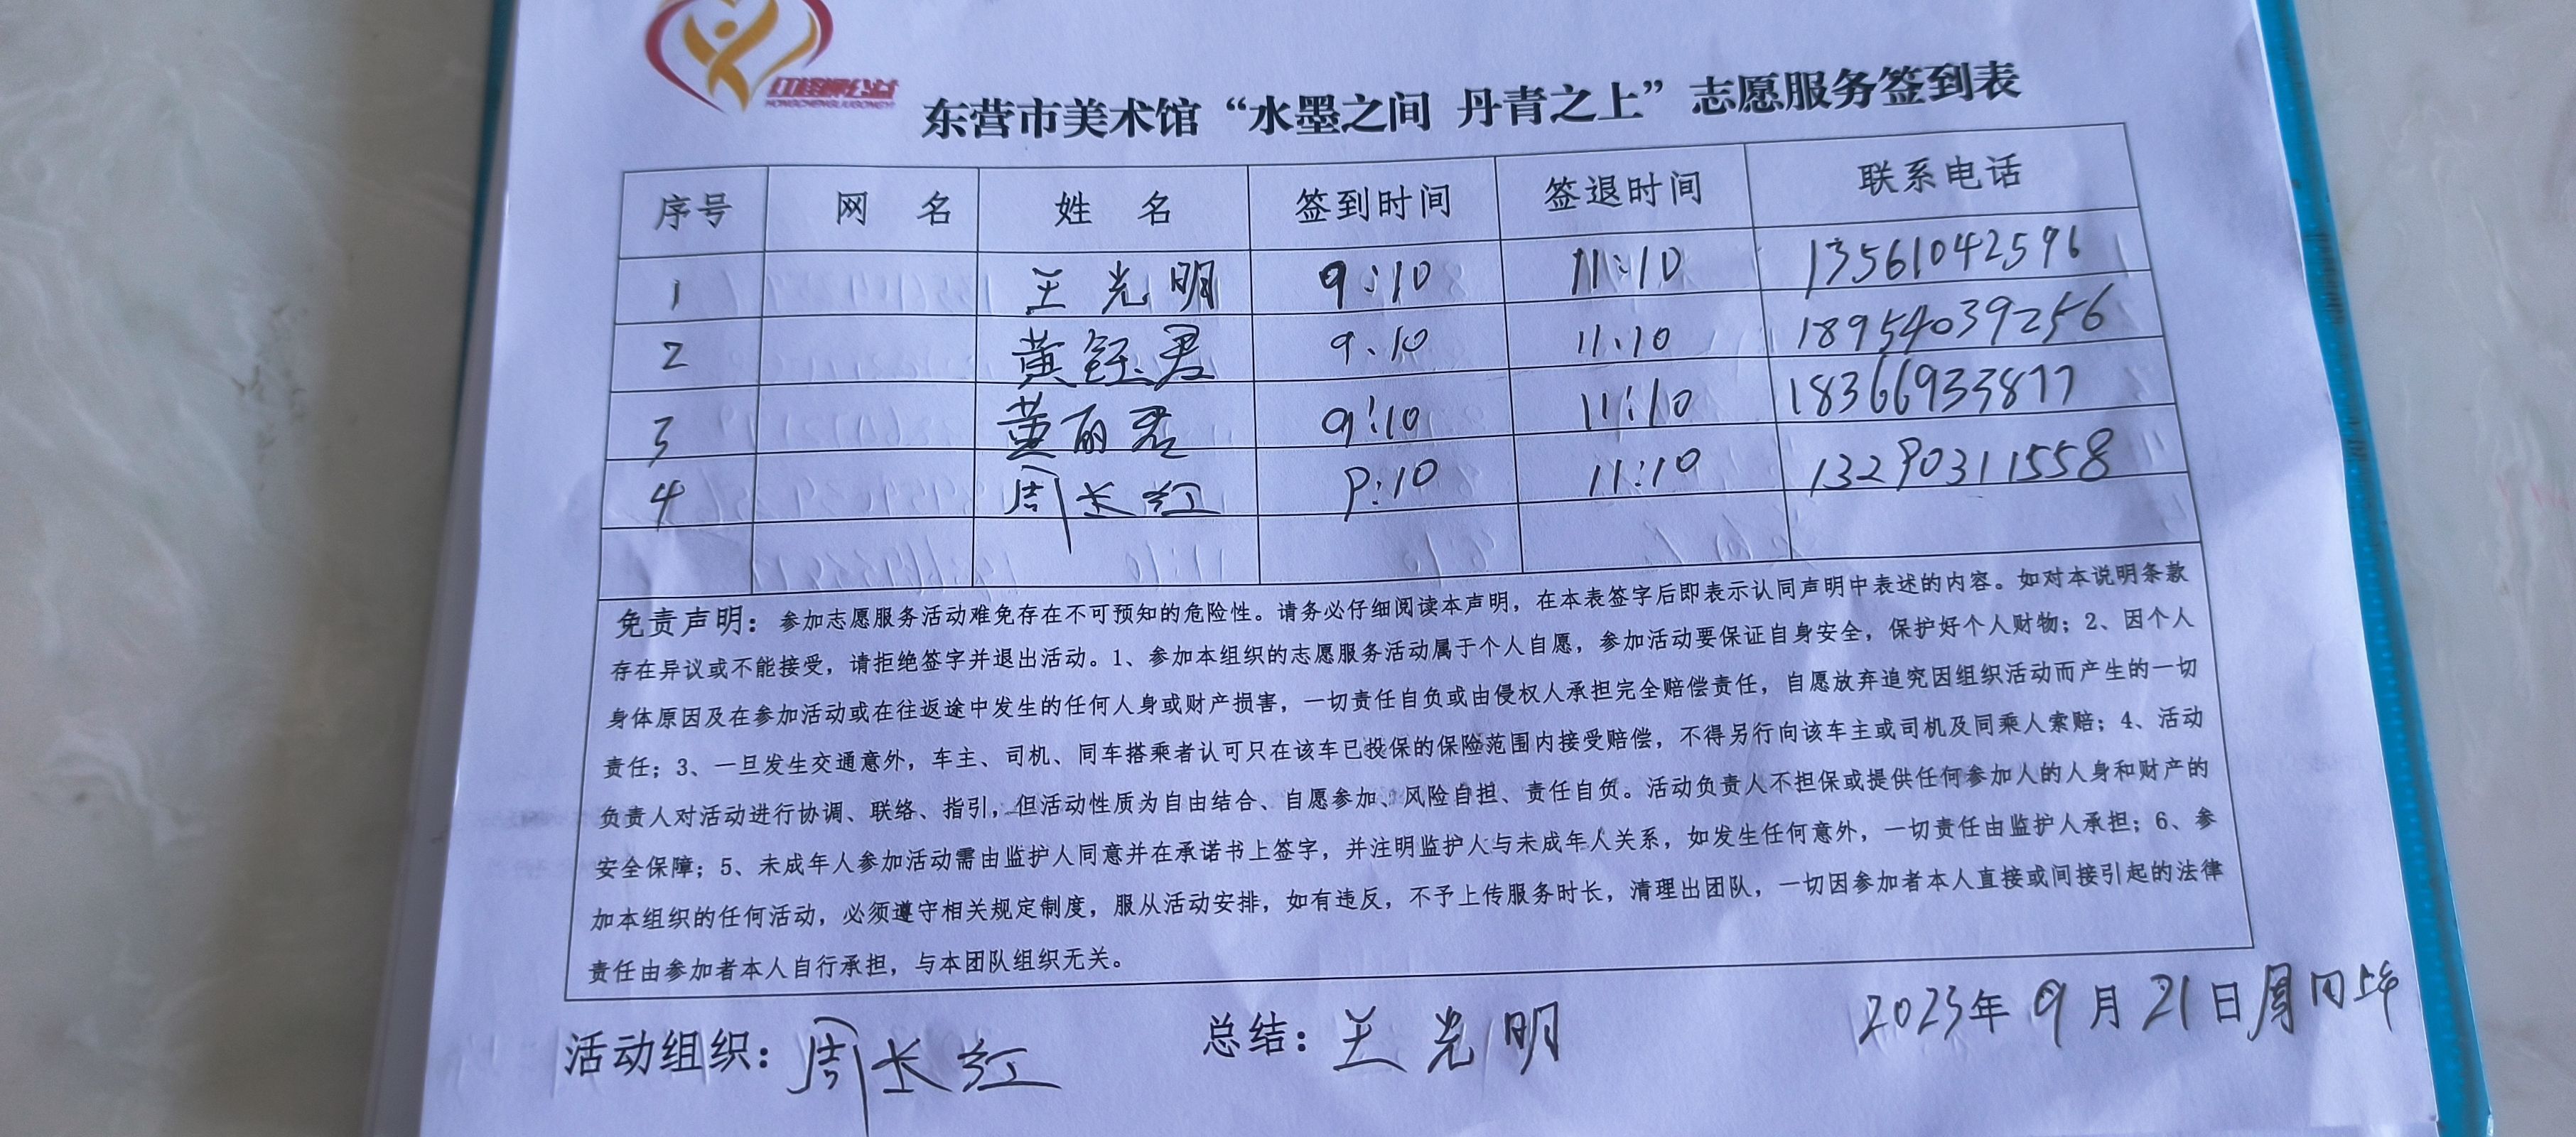 红橙柳公益
HONGCHENGLIUGONGYI
东营市美术馆“水墨之间 丹青之上”志愿服务签到表
序号 网 名 姓 名 签到时间 签退时间 联系电话
1 王光明 9:10 11:10 13561042596
2 黄钰君 9.10 11.10 18954039256
3 黄丽君 9:10 11:10 18366933877
4 周长红 9:10 11:10 13290311558
免责声明：参加志愿服务活动难免存在不可预知的危险性。请务必仔细阅读本声明，在本表签字后即表示认同声明中表述的内容。如对本说明条款
存在异议或不能接受，请拒绝签字并退出活动。1、参加本组织的志愿服务活动属于个人自愿，参加活动要保证自身安全，保护好个人财物；2、因个人
身体原因及在参加活动或在往返途中发生的任何人身或财产损害，一切责任自负或由侵权人承担完全赔偿责任，自愿放弃追究因组织活动而产生的一切
责任；3、一旦发生交通意外，车主、司机、同车搭乘者认可只在该车已投保的保险范围内接受赔偿，不得另行向该车主或司机及同乘人索赔；4、活动
负责人对活动进行协调、联络、指引，但活动性质为自由结合、自愿参加、风险自担、责任自负。活动负责人不担保或提供任何参加人的人身和财产的
安全保障；5、未成年人参加活动需由监护人同意并在承诺书上签字，并注明监护人与未成年人关系，如发生任何意外，一切责任由监护人承担；6、参
加本组织的任何活动，必须遵守相关规定制度，服从活动安排，如有违反，不予上传服务时长，清理出团队，一切因参加者本人直接或间接引起的法律
责任由参加者本人自行承担，与本团队组织无关。
活动组织：周长红 总结：王光明 2023年9月21日周四上午